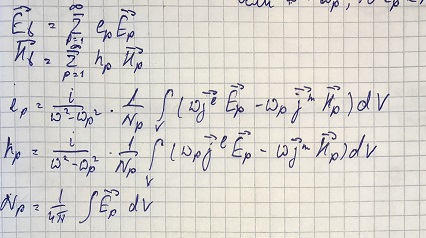 E⃗_b = Σ_{p=1}^{∞} e_p E⃗_p
H⃗_b = Σ_{p=1}^{∞} h_p H⃗_p
e_p = i/(ω² - ω_p²) · 1/N_p ∫_V (ω j⃗^e E⃗_p - ω_p j⃗^m H⃗_p) dV
h_p = i/(ω² - ω_p²) · 1/N_p ∫_V (ω_p j⃗^e E⃗_p - ω j⃗^m H⃗_p) dV
N_p = 1/4π ∫ E⃗_p dV